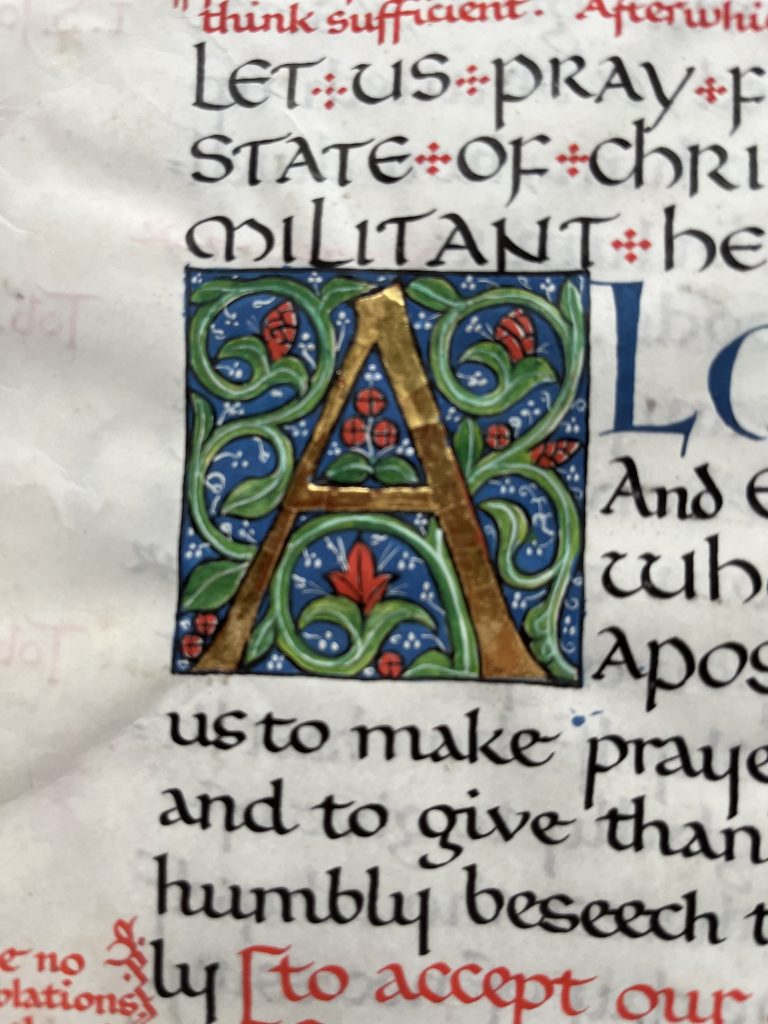 think sufficient. Afterwhi
LET US PRAY F
STATE OF CHRI
MILITANT HE
ALO
And E
who
apos
us to make praye
and to give than
humbly beseech t
e no
ly [to accept our
blations,